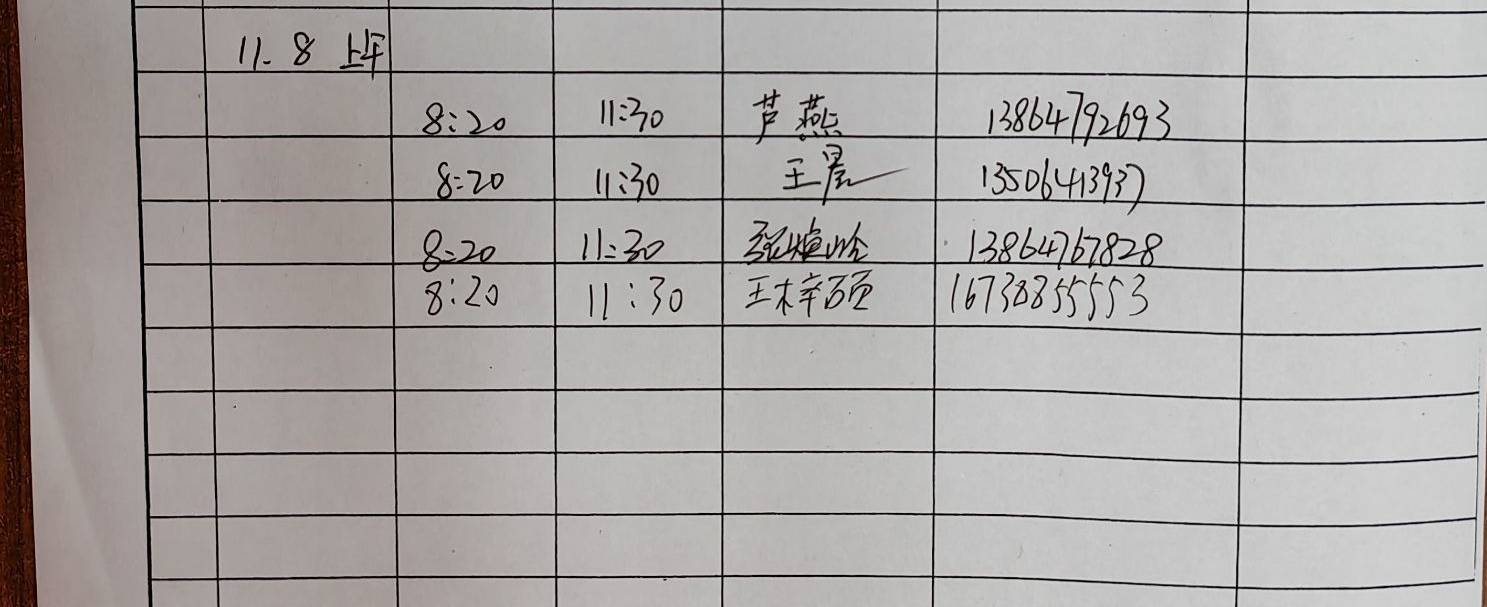 11.8 上午
8:20 11:30 芦燕 13864792693
8:20 11:30 王晨 13506413937
8:20 11:30 张 13864767828
8:20 11:30 王梓硕 16738855553